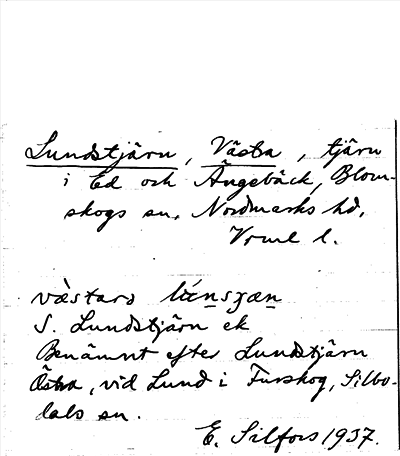 Lundstjärn, Västra, tjärn
i Ed och Ängebäck, Bloms-
skogs sn. Nordmarks hd.
Vrml l.
västars
S. Lundstjärn ek
Benämnt efter Lundstjärn
Östra, vid Lund i Furskog, Silbo-
dals sn.
E. Silfors 1937.